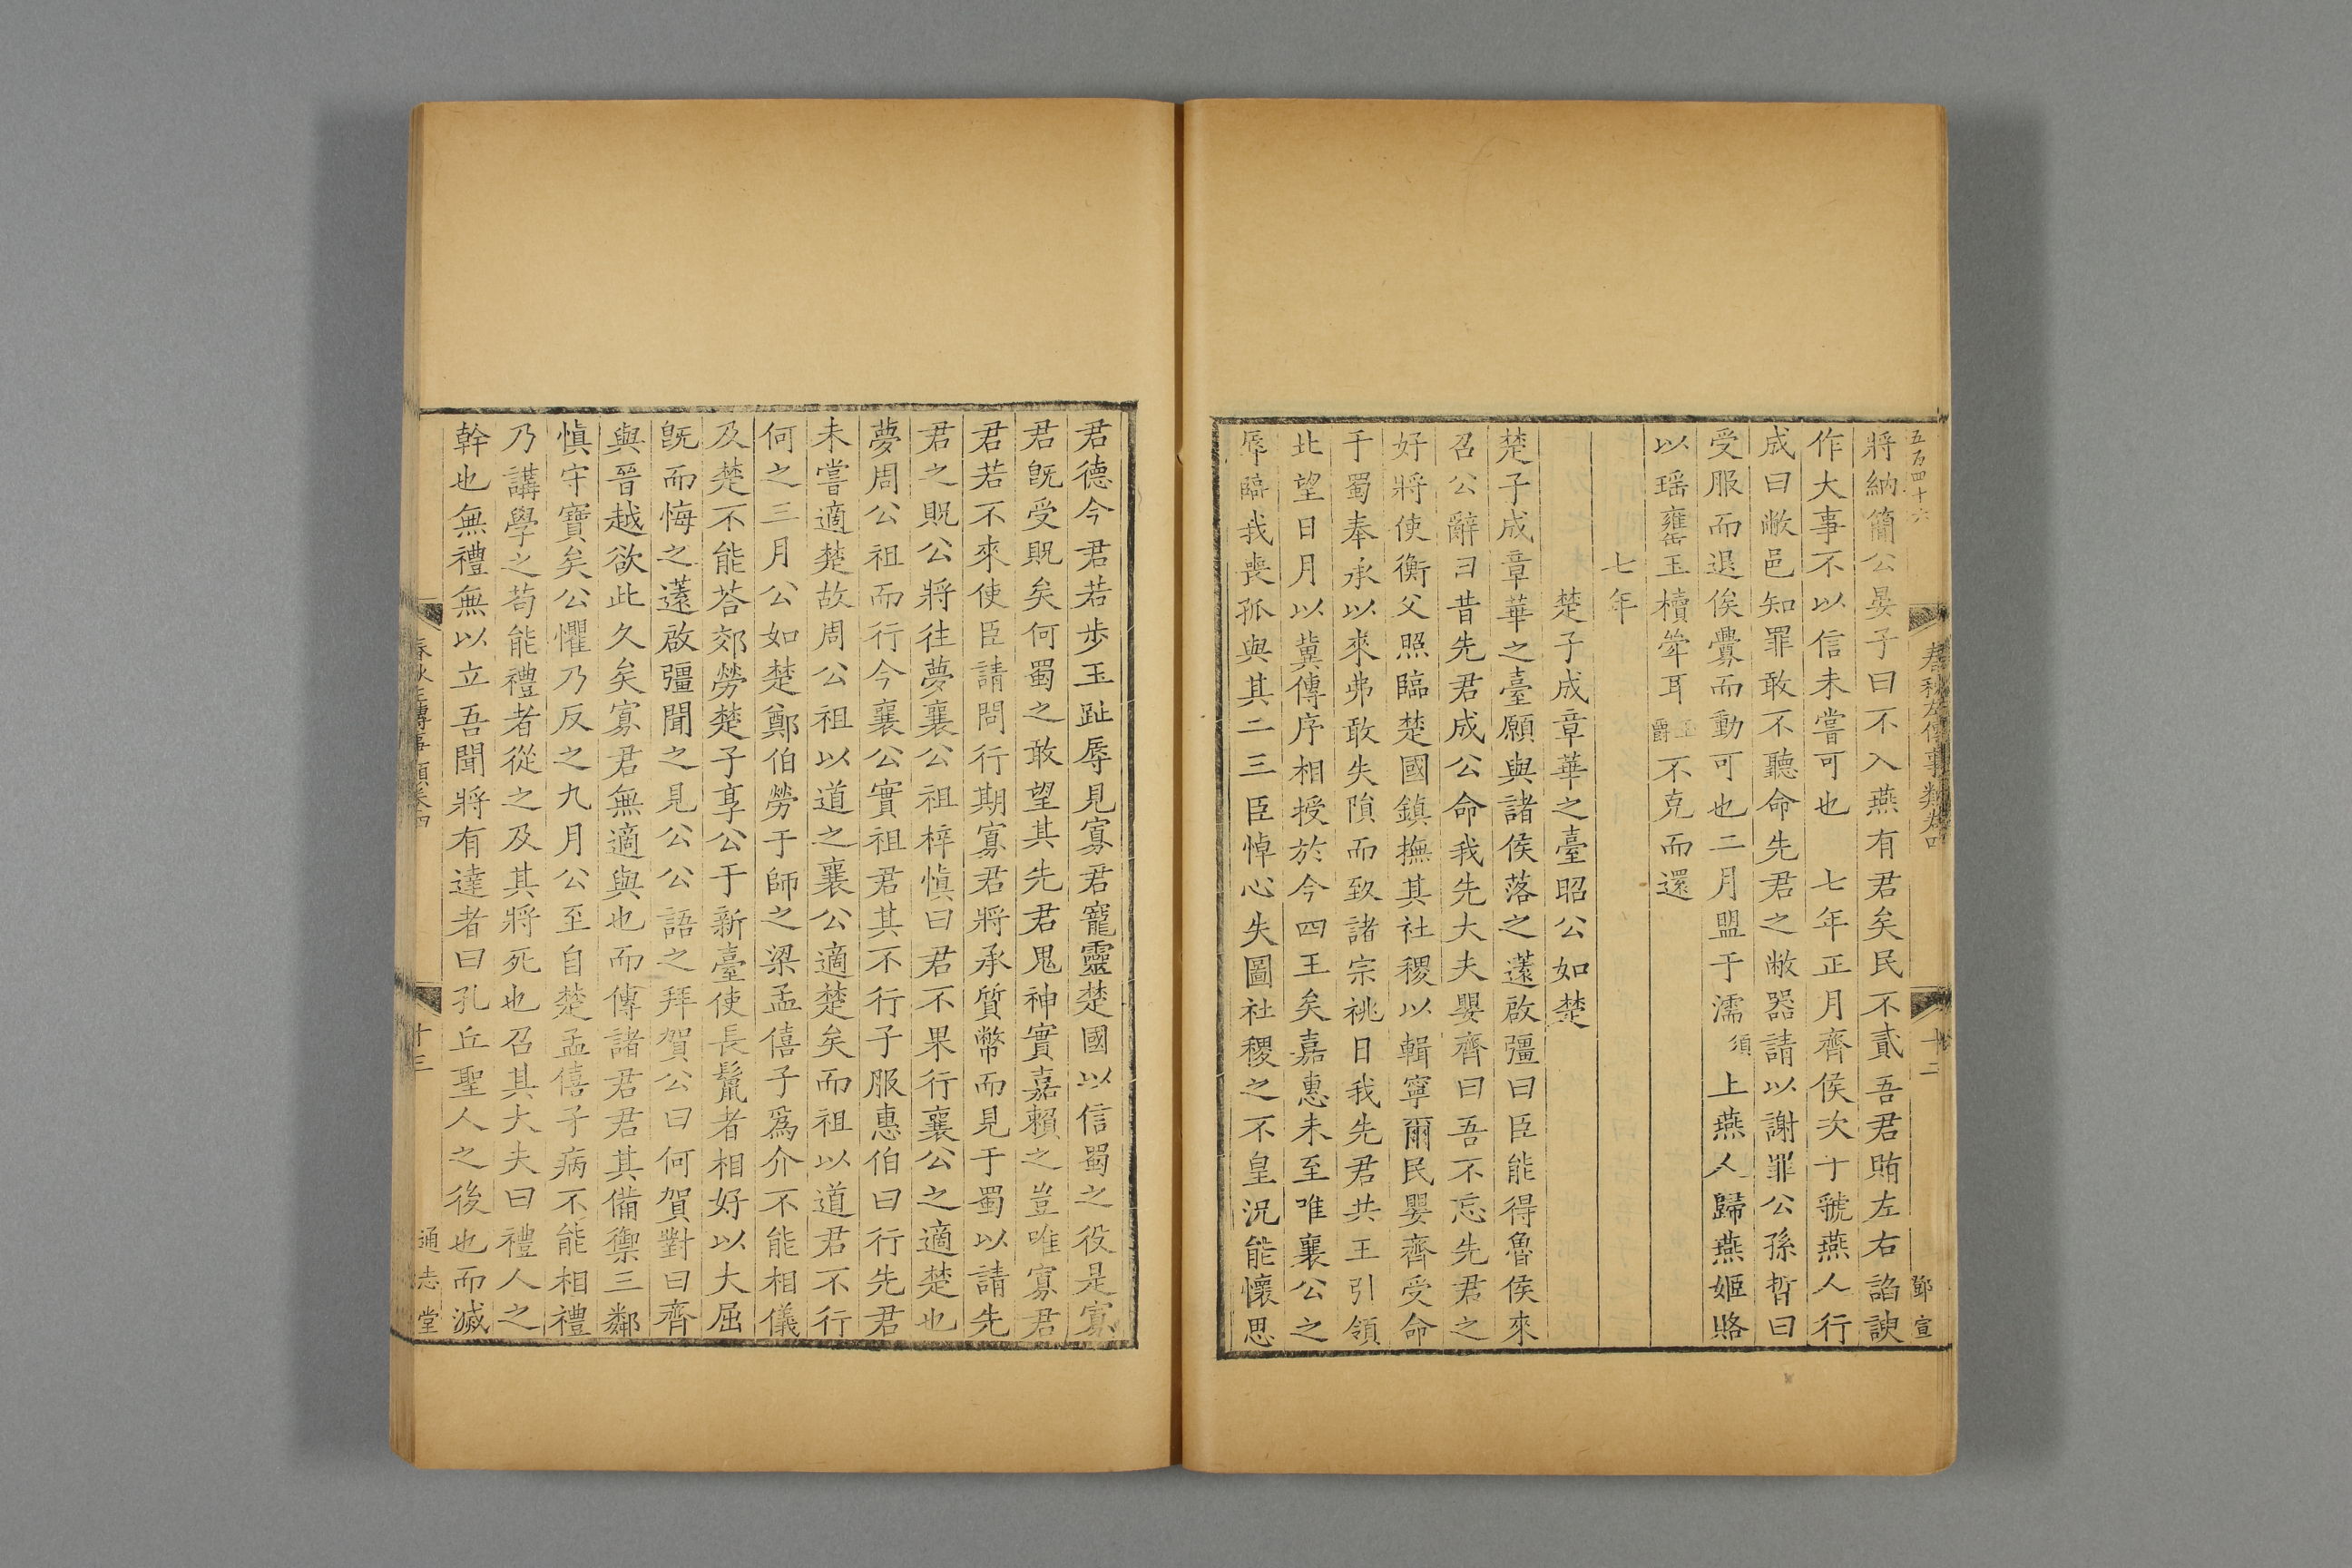 五百四十六
春秋左傳事類卷四
十二
鄧宣
將納簡公晏子曰不入燕有君矣民不貳吾君賄左右諂諛
作大事不以信未嘗可也 七年正月齊侯次于虢燕人行
成曰敝邑知罪敢不聽命先君之敝器請以謝罪公孫晳曰
受服而退俟釁而動可也二月盟于濡須上燕人歸燕姬賂
以瑶罋玉櫝斝耳玉爵不克而還
七年
楚子成章華之臺昭公如楚
楚子成章華之臺願與諸侯落之薳啟彊曰臣能得魯侯來
召公辭曰昔先君成公命我先大夫嬰齊曰吾不忘先君之
好將使衡父照臨楚國鎮撫其社稷以輯寧爾民嬰齊受命
于蜀奉承以來弗敢失隕而致諸宗祧日我先君共王引領
北望日月以冀傳序相授於今四王矣嘉惠未至唯襄公之
辱臨我喪孤與其二三臣悼心失圖社稷之不皇況能懷思
君德今君若步玉趾辱見寡君寵靈楚國以信蜀之役是寡
君旣受貺矣何蜀之敢望其先君鬼神實嘉賴之豈唯寡君
君若不來使臣請問行期寡君將承質幣而見于蜀以請先
君之貺公將往夢襄公祖梓愼曰君不果行襄公之適楚也
夢周公祖而行今襄公實祖君其不行子服惠伯曰行先君
未嘗適楚故周公祖以道之襄公適楚矣而祖以道君不行
何之三月公如楚鄭伯勞于師之梁孟僖子爲介不能相儀
及楚不能荅郊勞楚子享公于新臺使長鬛者相好以大屈
旣而悔之薳啟彊聞之見公公語之拜賀公曰何賀對曰齊
與晉越欲此久矣寡君無適與也而傳諸君君其備禦三鄰
愼守寶矣公懼乃反之九月公至自楚孟僖子病不能相禮
乃講學之苟能禮者從之及其將死也召其大夫曰禮人之
幹也無禮無以立吾聞將有達者曰孔丘聖人之後也而滅
春秋左傳事類卷四
十三
通志堂